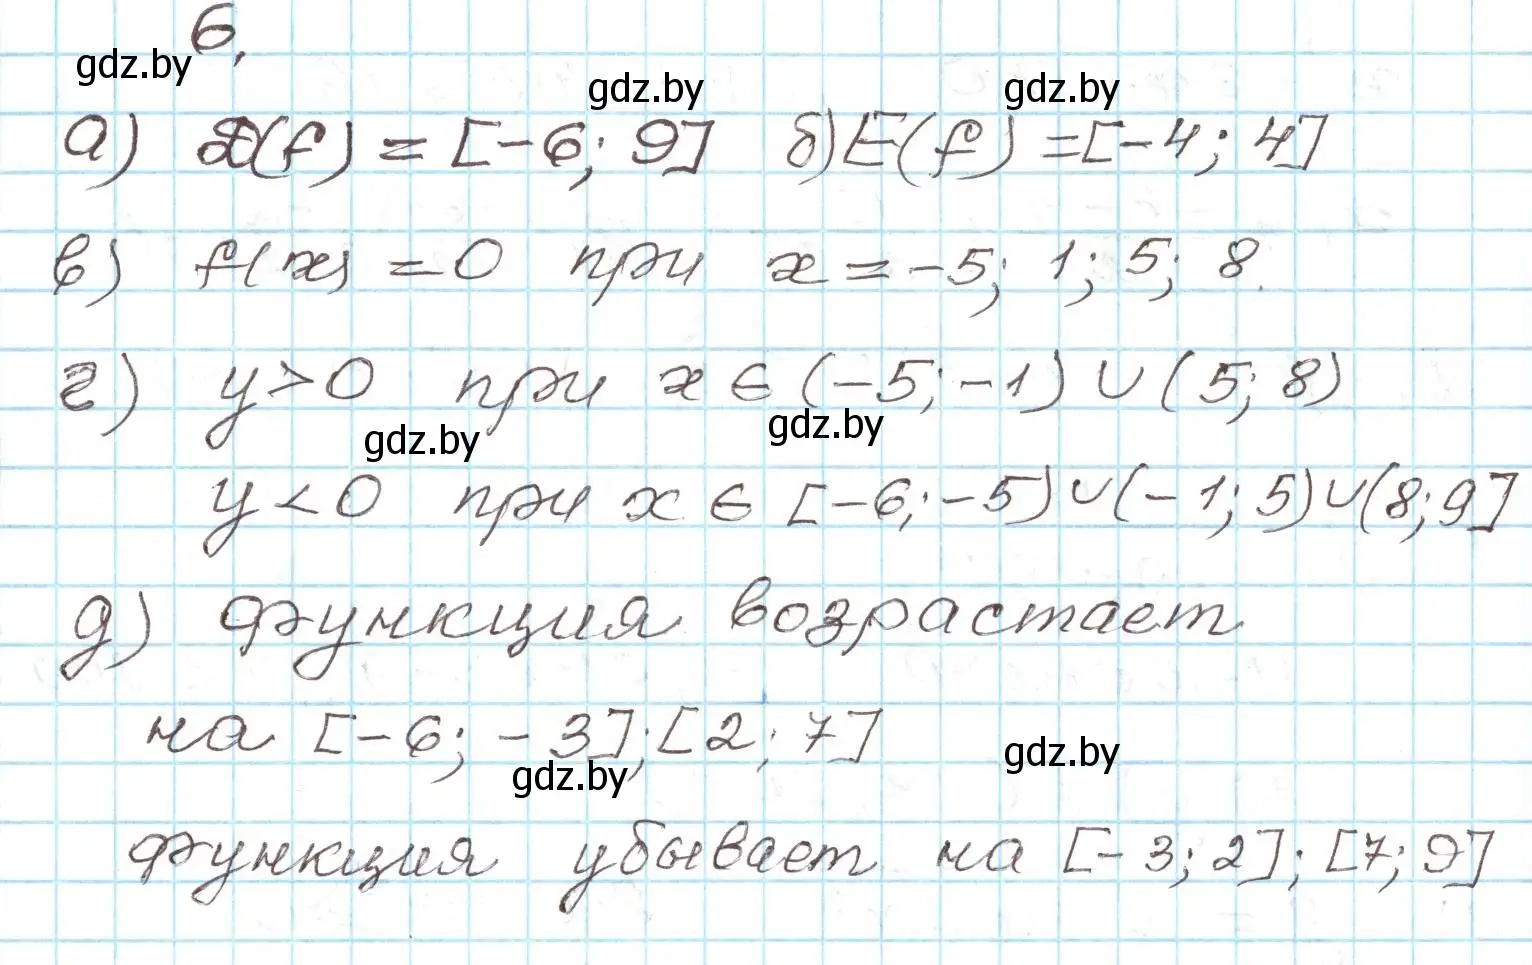 6.
gdz.by
gdz.by
gdz.by
а) D(f) = [-6; 9] б) E(f) = [-4; 4]
в) f(x) = 0 при x = -5; 1; 5; 8.
г) y > 0 при x ∈ (-5; -1) ∪ (5; 8)
gdz.by
gdz.by
y < 0 при x ∈ [-6; -5) ∪ (-1; 5) ∪ (8; 9]
д) функция возрастает
на [-6; -3]; [2; 7]
gdz.by
gdz.by
функция убывает на [-3; 2]; [7; 9]